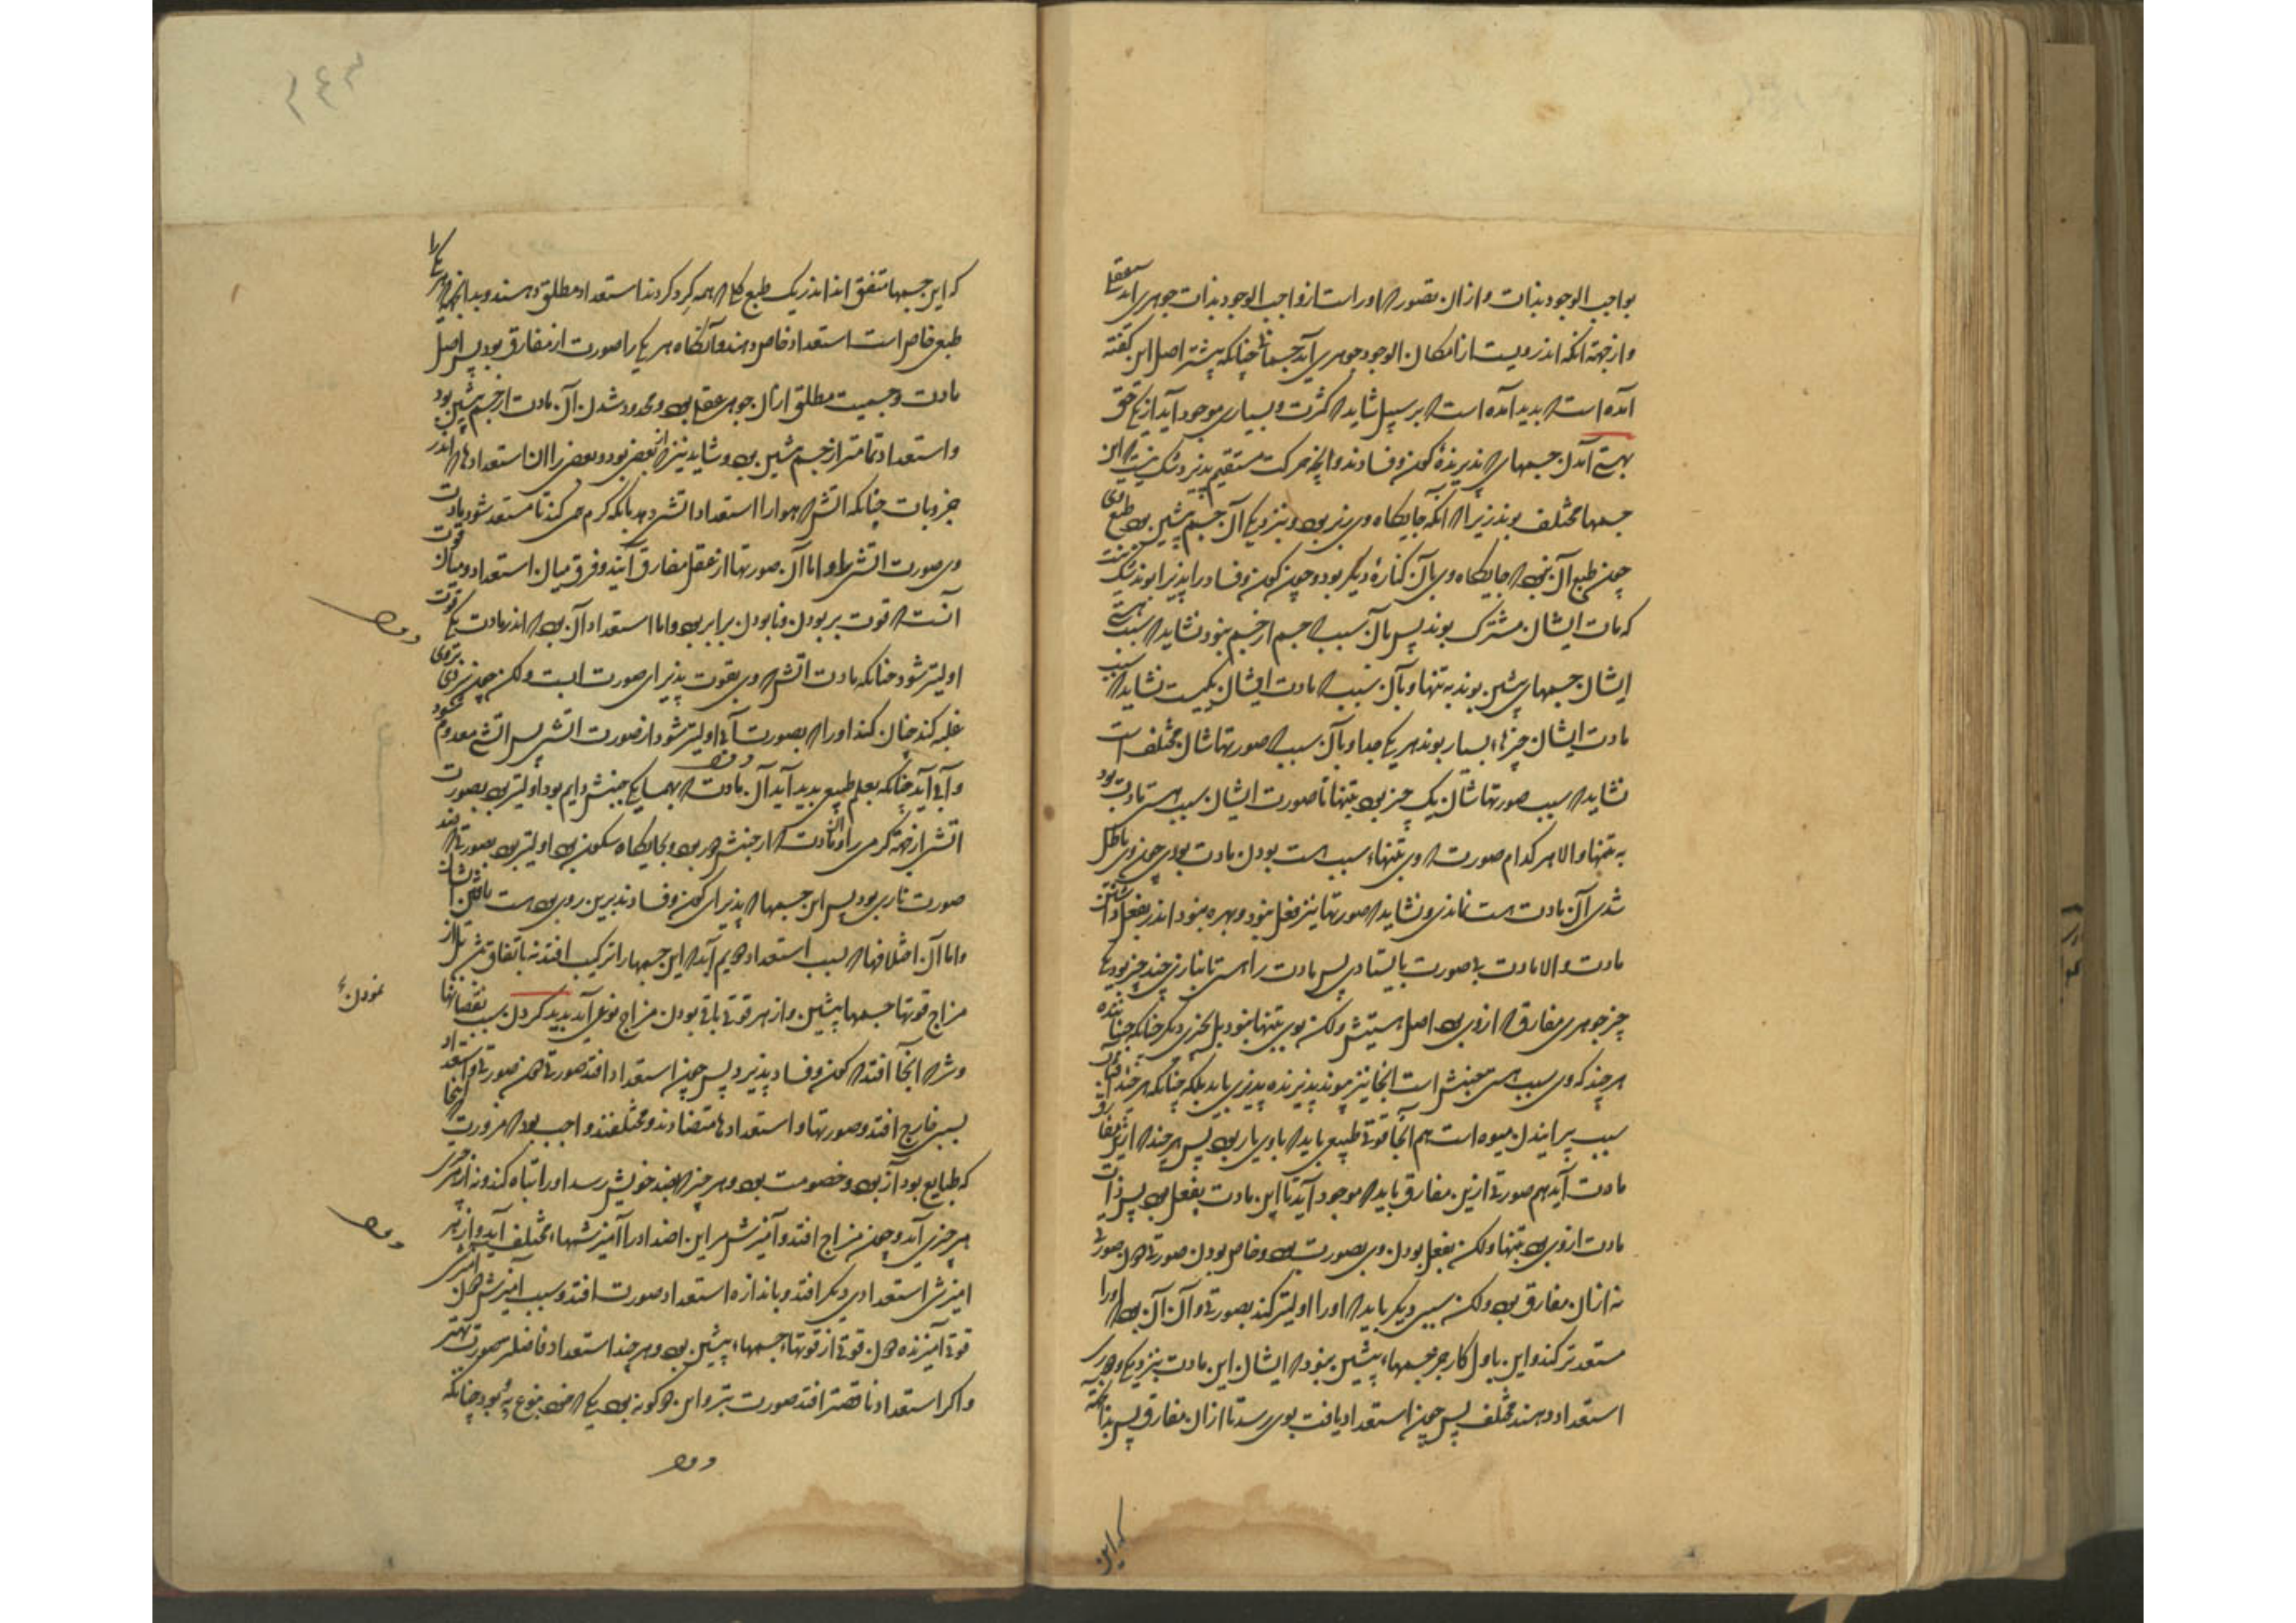 بواجب الوجود بذات و از آن تصور که او راست از واجب الوجود بذات جوهری آید عقلی
و از جهة آنکه اندر ویست از امکان الوجود جوهری آید جسمانی چنانکه پیشتر اصل این گفته
آمده است که بدید آمده است که بر سبیل شاید که کثرت و بسیاری موجود آید از یکی حق
بهستی آمدن جسمهای پذیرندهٔ کون و فساد و آنچه حرکت مستقیم پذیرد شک نیست که این
جسمها مختلف بوند زیرا که آنکه جایگاه وی زبر بود و بنزدیکی آن جسم پیشین بود طبع وی
چون طبع آن نبود که جایگاه وی بآن کنارهٔ دیگر بود و چون کون و فساد را پذیرا بوند شک نیست
که مادت ایشان مشترک بوند پس بآن سبب که جسم از جسم نبود نشاید که سبب هستی
ایشان جسمهای پیشین بوند به تنها و بآن سبب که مادت ایشان یکیست نشاید که سبب
مادت ایشان چیزهاء بسیار بوند هر یکی جدا و بآن سبب که صورتهاشان مختلف است
نشاید که سبب صورتهاشان یک چیز بود بتنها تا صورت ایشان سبب هستی مادت بود
به تنها و الا هر کدام صورت که وی بتنهاء سبب هست بودن مادت بودی چون وی باطل
شدی آن مادت هست نماندی و نشاید که صورتها نیز فعل نبود و بهره نبود اندر بفعل داشتن
مادت و الا مادت بی صورت بایستادی پس مادت را هستی بانبازی چند چیز بود یکی
چیز جوهری مفارق که از وی بود اصل هستیش ولکن بوی بتنها نبود بل بچیزی دیگر چنانکه جنباننده
هر چند که وی سبب هستی جنبش است آنجا نیز موند پذیرنده پذیری باید بلکه چنانکه هر چند آفتاب
سبب پزانیدن میوه است هم آنجا قوتی طبیعی باید که با وی یار بود پس هر چند که از مفارق
مادت آید هم صورتی ازین مفارق باید که موجود آید تا این مادت بفعل بود پس ذات
مادت از وی بود بتنها ولکن بفعل بودن وی بصورت بود و خاص بودن صورتی دون صورتی
نه از آن مفارق بود ولکن سببی دیگر باید که او را اولیتر کند بصورتی و آن آن بود که او را
مستعدتر کند و این باول کار جز جسمهاء پیشین نبود که ایشان این مادت بنزدیکی و دوری
استعداد دهند مختلف پس چون استعداد یافت بوی رسد تا از آن مفارق پس بدانکه
که این
که این جسمها متفق اند اندر یک طبع کلی که همه گرد گردند استعداد مطلق دهند و بدانچه هر یکی را
طبع خاص است استعداد خاص دهند و آنگاه هر یکی را صورت از مفارق بود پس اصل
مادت و جسمیت مطلق از آن جوهر عقلی بود و محدود شدن آن مادت از جسم پیشین بود
و استعداد تمامتر از جسم پیشین بود و شاید نیز که از بعضی بود و بعضی را آن استعدادها که اندر
جزویات چنانکه آتش که هوا را استعداد آتش دهد بآنکه گرم می کند تا مستعد شود مادت
وی صورت آتشی را و اما آن صورتها از عقل مفارق آیند و فرق میان استعداد و میان قوت
آنست که قوت بر بودن و نابودن برابر بود و اما استعداد آن بود که اندر مادت یکی قوت
اولیتر شود چنانکه مادت آتش که وی بقوت پذیرای صورت آبست ولکن چون سردی بروی
غلبه کند چنان کند او را که بصورت آبی اولیتر شود از صورت آتشی پس آتشی معدوم شود
و آبی آید چنانکه بعلم طبیعی بدید آید آن مادت که بهمسایگی جنبش دایم بود اولیتر بود بصورت
آتش از جهة گرمی را و آن مادت که از جنبش دور بود و بجایگاه سکون بود اولیتر بود بصورتی که ضد
صورت ناری بود پس این جسمها که پذیرای کون و فسادند بدین روی بود هست بودن ایشان
و اما آن اختلافها که بسبب استعداد دویم آید که این جسمها را ترکیب افتد نه باتفاق مثل از
مزاج قوتها جسمها پیشین و از هر قوتی باقی بودن مزاج نوعی آید بدید کردن سبب نقصانها
نمودن
و شر که آنجا افتد که کون و فساد پذیرد پس چون استعداد افتد صورتی دون صورتی و استعداد
بسببی خارج افتد و صورتها و استعدادها متضادند و مختلفند و واجب بود که ضرورت آنجا
که طبایع بود از بود و خصومت بود و هر چیز که بضد خویش رسد او را تباه کند و نه از هر چیزی
هر چیزی آید و چون مزاج افتد و آمیزش مر این اضداد را آمیزشهاء مختلف آید و از هر
امیزش استعدادی دیگر افتد و باندازه استعداد صورت افتد و سبب آمیزش دون امیزش
قوتی آمیزنده دون قوتی از قوتهاء جسمهاء پیشین بود و هر چند استعداد فاضلتر صورت بهتر
و اگر استعداد ناقصتر افتد صورت بتر و این دو گونه بود یکی که